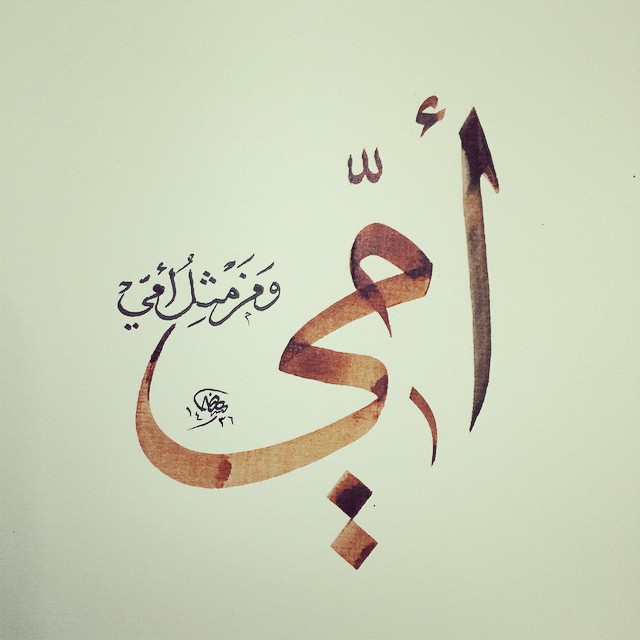 أُمِّي
وَمَنْ مِثْلُ أُمِّي
١٤٣٦